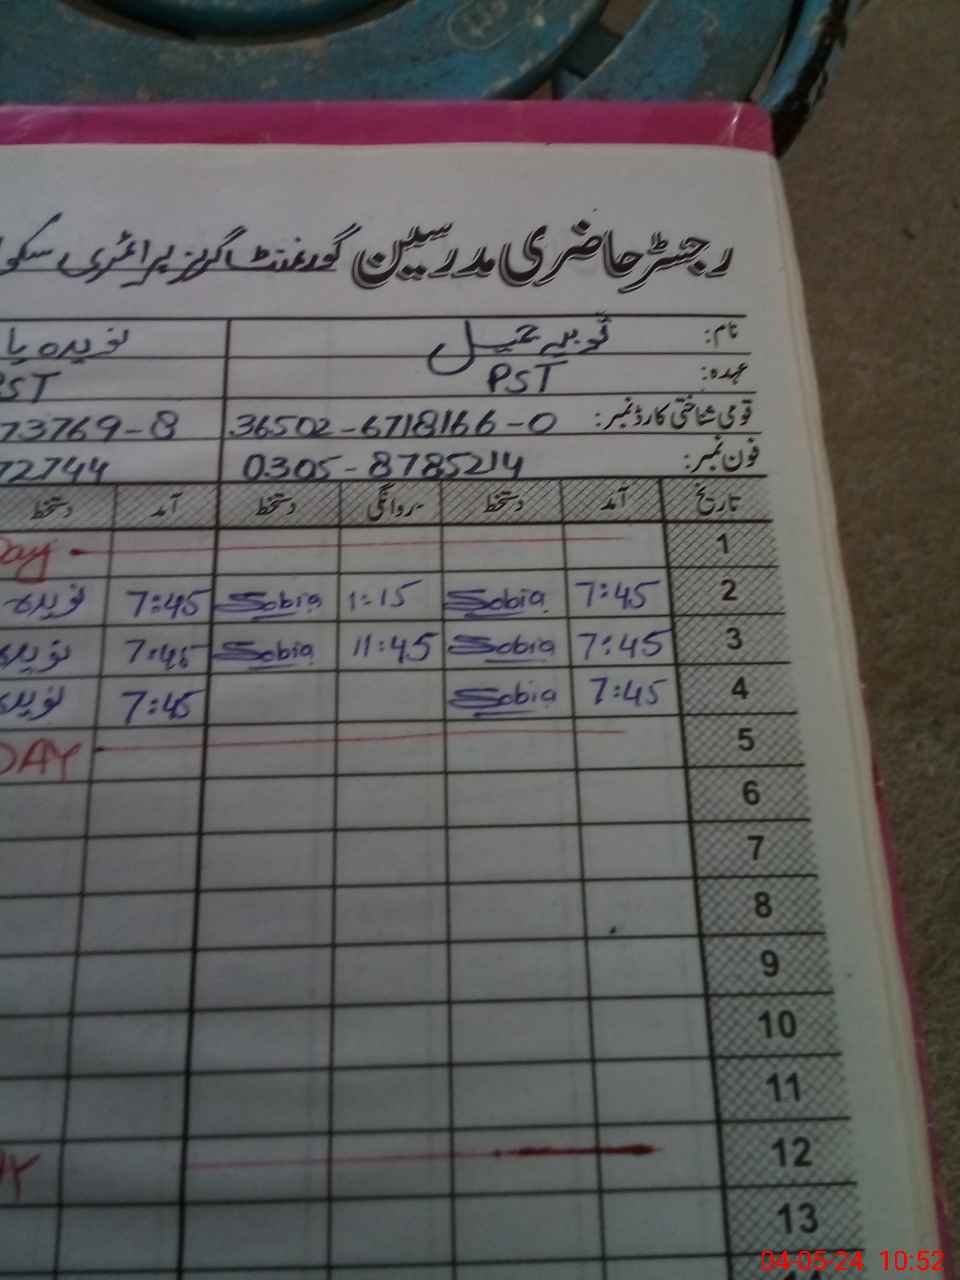 رجسٹر حاضری مدرسین گورنمنٹ گرلز پرائمری سکو
نام: ثوبیہ جمیل نویدہ یا
عہدہ: PST PST
قومی شناختی کارڈ نمبر: 36502-6718166-0 73769-8
فون نمبر: 0305-8785214 72744
تاریخ آمد دستخط روانگی دستخط آمد دستخط
1 Day
2 7:45 Sobia 1:15 Sobia 7:45 نویدہ
3 7:45 Sobia 11:45 Sobia 7:45 نویدہ
4 7:45 Sobia 7:45 نویدہ
5 DAY
6
7
8
9
10
11
12
13
04-05-24 10:52